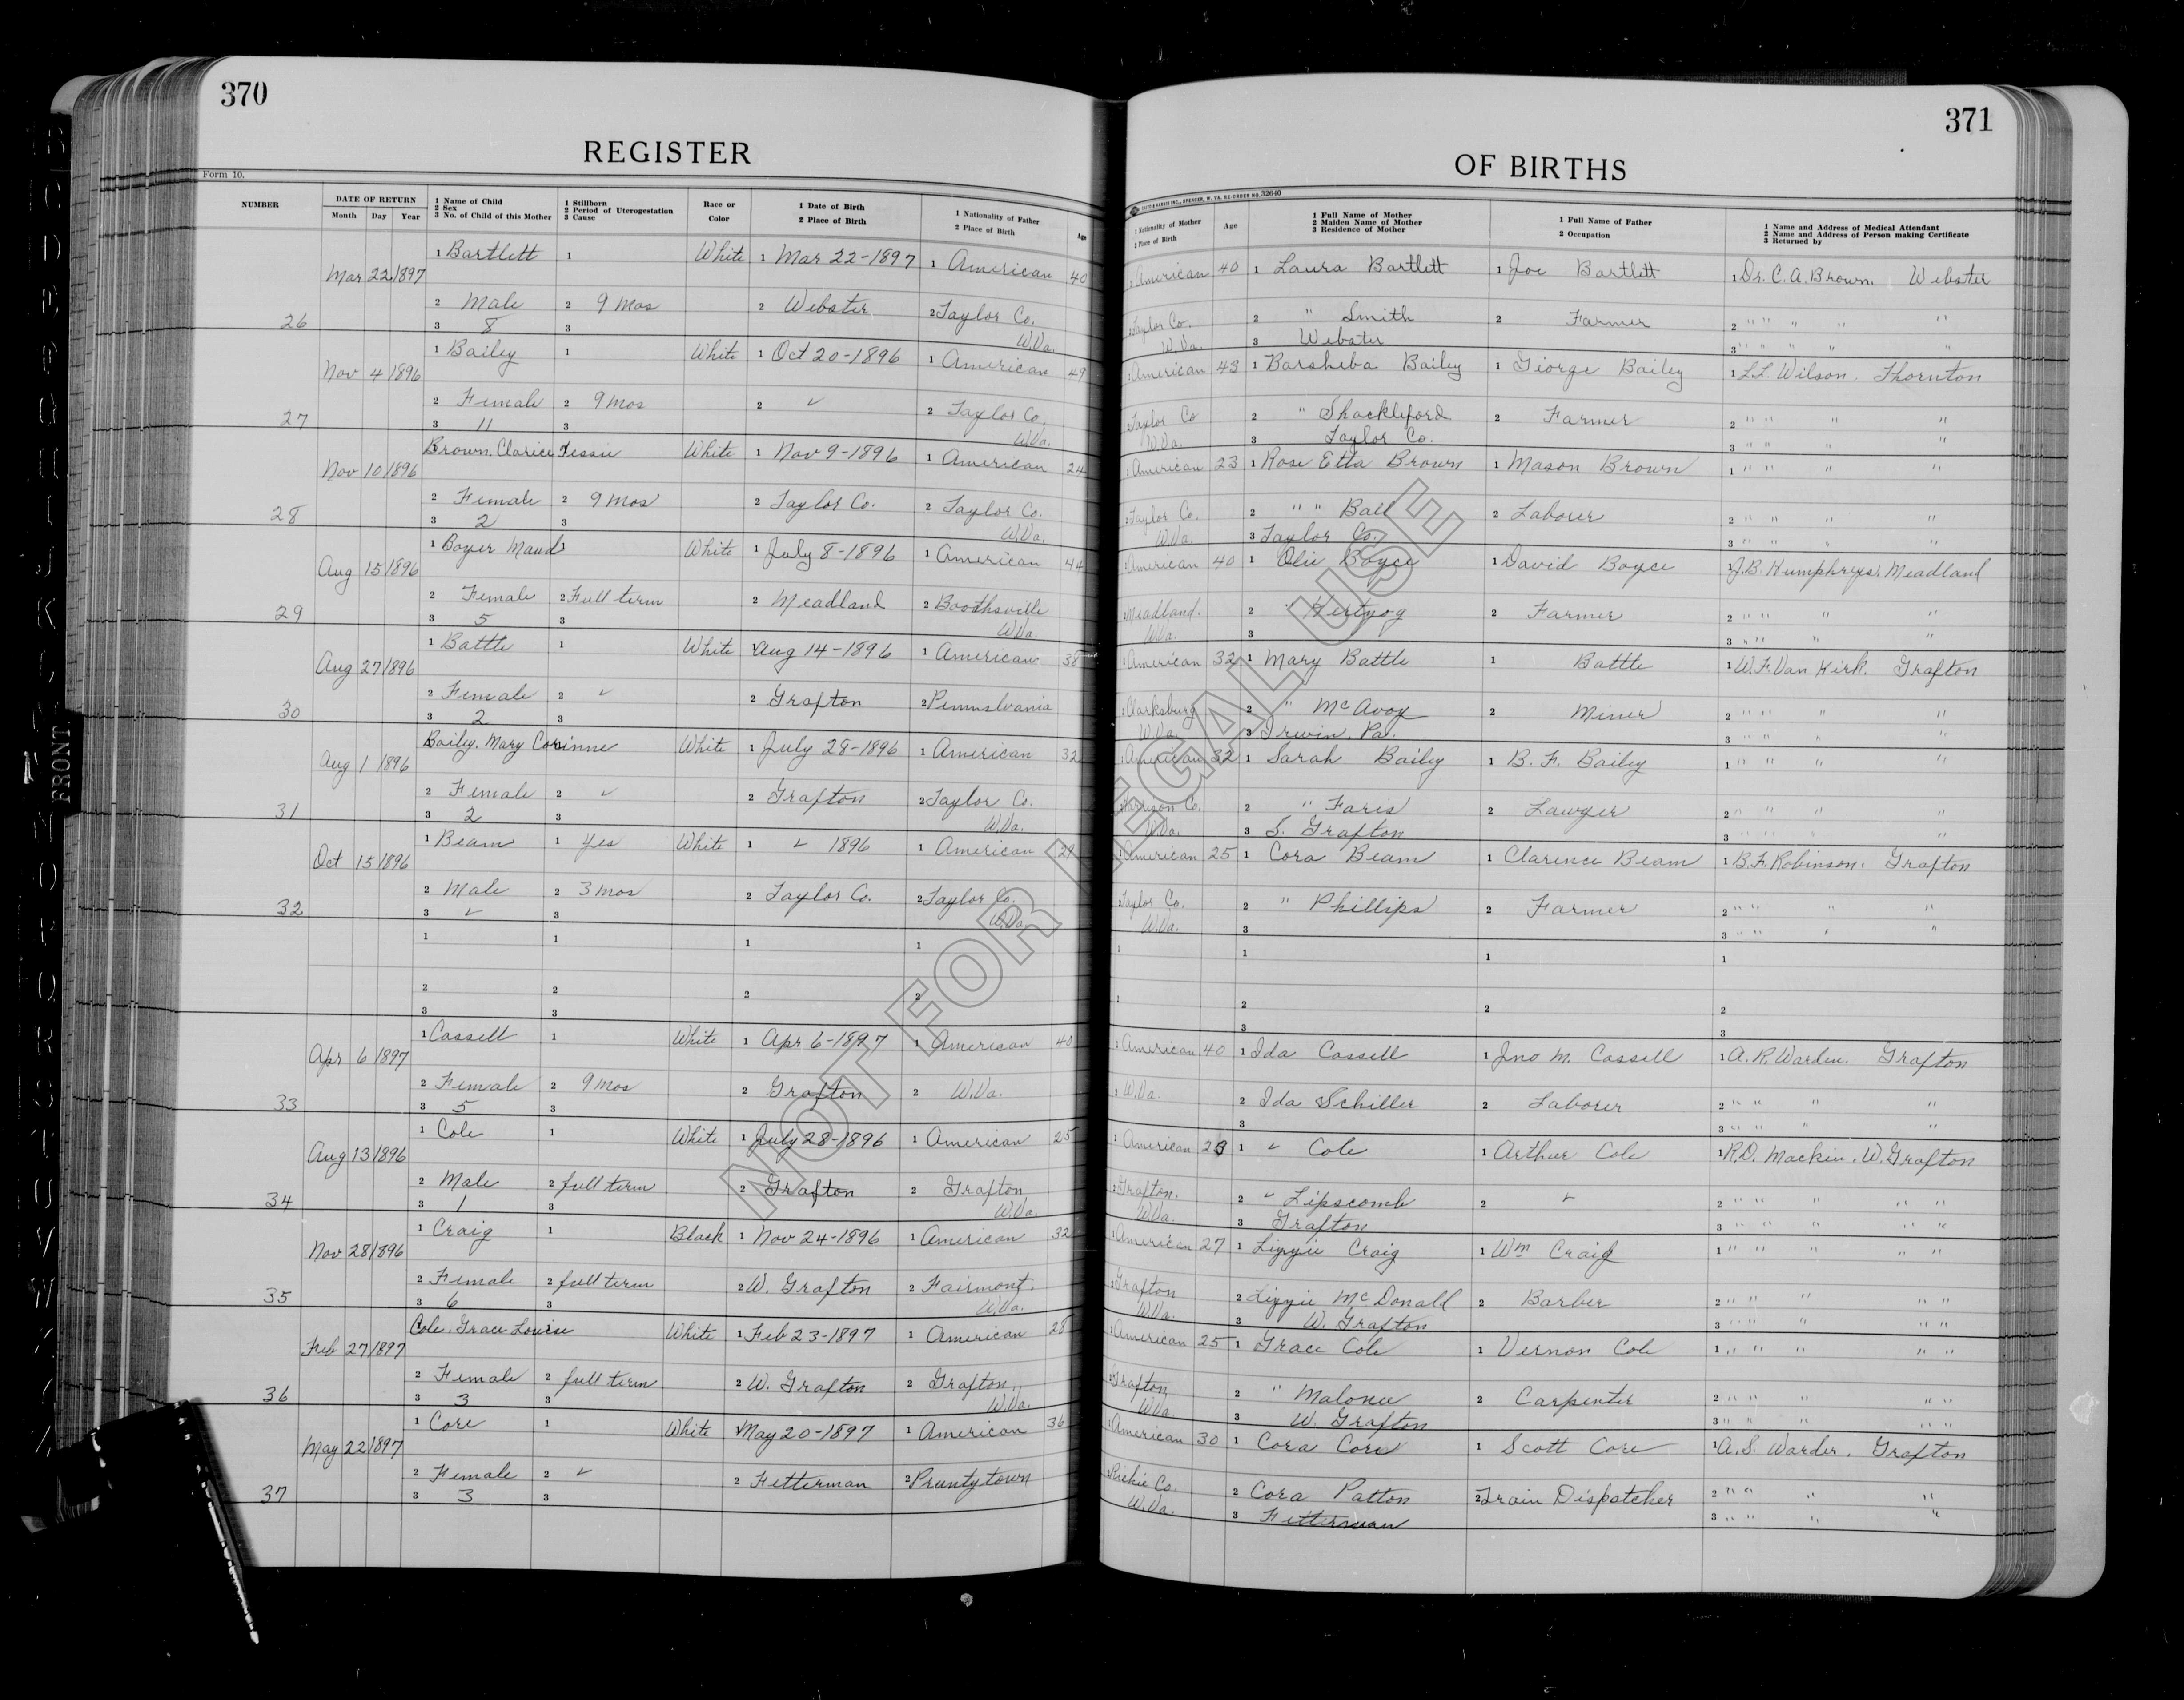 370
REGISTER
Form 10.
NUMBER
DATE OF RETURN
Month Day Year
1 Name of Child
2 Sex
3 No. of Child of this Mother
1 Stillborn
2 Period of Uterogestation
3 Cause
Race or Color
1 Date of Birth
2 Place of Birth
1 Nationality of Father
2 Place of Birth
Age
Mar 22 1897 1 Bartlett 1 White 1 Mar 22-1897 1 American 40
26 2 Male 2 9 Mos 2 Webster 2 Taylor Co.
3 8 3 W.Va.
Nov 4 1896 1 Bailey 1 White 1 Oct 20-1896 1 American 49
27 2 Female 2 9 Mos 2 ✓ 2 Taylor Co.
3 11 3 W.Va.
Nov 10 1896 Brown, Clarice Jessie White 1 Nov 9-1896 1 American 24
28 2 Female 2 9 Mos 2 Taylor Co. 2 Taylor Co.
3 2 3 W.Va.
Aug 15 1896 1 Boyer Maud 1 White 1 July 8-1896 1 American 44
29 2 Female 2 Full term 2 Meadland 2 Boothsville
3 5 3 W.Va.
Aug 27 1896 1 Battle 1 White 1 Aug 14-1896 1 American 38
30 2 Female 2 ✓ 2 Grafton 2 Pennslvania
3 2 3
Aug 1 1896 Bailey, Mary Corinne White 1 July 28-1896 1 American 32
31 2 Female 2 ✓ 2 Grafton 2 Taylor Co.
3 2 3 W.Va.
Oct 15 1896 1 Beam 1 Yes White 1 ✓ 1896 1 American 29
32 2 Male 2 3 mos 2 Taylor Co. 2 Taylor Co.
3 ✓ 3 W.Va.
1 1 1 1
2 2 2 2
3 3
Apr 6 1897 1 Cassell 1 White 1 Apr 6-1897 1 American 40
33 2 Female 2 9 Mos 2 Grafton 2 W.Va.
3 5 3
Aug 13 1896 1 Cole 1 White 1 July 28-1896 1 American 25
34 2 Male 2 full term 2 Grafton 2 Grafton
3 1 3 W.Va.
Nov 28 1896 1 Craig 1 Black 1 Nov 24-1896 1 American 32
35 2 Female 2 full term 2 W. Grafton 2 Fairmont.
3 6 3 W.Va.
Feb 27 1897 Cole, Grace Louise White 1 Feb 23-1897 1 American 28
36 2 Female 2 full term 2 W. Grafton 2 Grafton,
3 3 3 W.Va.
May 22 1897 1 Core 1 White 1 May 20-1897 1 American 36
37 2 Female 2 ✓ 2 Fetterman 2 Pruntytown
3 3 3
371
OF BIRTHS
SPENCER, W. VA. RE-ORDER NO. 32640
1 Nationality of Mother
2 Place of Birth
Age
1 Full Name of Mother
2 Maiden Name of Mother
3 Residence of Mother
1 Full Name of Father
2 Occupation
1 Name and Address of Medical Attendant
2 Name and Address of Person making Certificate
3 Returned by
1 American 40 1 Laura Bartlett 1 Joe Bartlett 1 Dr. C. A. Brown. Webster
2 Taylor Co. 2 " Smith 2 Farmer 2 " " " " "
W.Va. 3 Webster 3 " " " " "
1 American 43 1 Barsheba Bailey 1 George Bailey 1 L.L. Wilson. Thornton
2 Taylor Co 2 " Shackleford 2 Farmer 2 " " " "
W.Va. 3 Taylor Co. 3 " " " "
1 American 23 1 Rose Etta Brown 1 Mason Brown 1 " " " "
2 Taylor Co. 2 " " Ball 2 Laborer 2 " " " "
W.Va. 3 Taylor Co. 3 " " " "
1 American 40 1 Olie Boyce 1 David Boyce 1 J.B. Humphreys, Meadland
2 Meadland. 2 " Hertzog 2 Farmer 2 " " " "
W.Va. 3 3 " " " "
1 American 32 1 Mary Battle 1 Battle 1 W.F. Van Kirk. Grafton
2 Clarksburg 2 " McAvoy 2 Miner 2 " " " "
W.Va. 3 Irwin, Pa. 3 " " " "
1 American 32 1 Sarah Bailey 1 B. F. Bailey 1 " " " "
2 Harrison Co. 2 " Faris 2 Lawyer 2 " " " "
W.Va. 3 S. Grafton 3 " " " "
1 American 25 1 Cora Beam 1 Clarence Beam 1 B.F. Robinson. Grafton
2 Taylor Co. 2 " Phillips 2 Farmer 2 " " " "
W.Va. 3 3 " " " "
1 1 1 1
2 2 2
3 3
1 American 40 1 Ida Cassell 1 Jno M. Cassell 1 A. R. Warden. Grafton
2 W.Va. 2 Ida Schiller 2 Laborer 2 " " " "
3 3 " " " "
1 American 1 ✓ Cole 1 Arthur Cole 1 R.D. Mackin. W. Grafton
2 Grafton. 2 ✓ Lipscomb 2 ✓ 2 " " " " "
W.Va. 3 Grafton 3 " " " " "
1 American 27 1 Lizzie Craig 1 Wm Craig 1 " " " " "
2 Grafton 2 Lizzie McDonald 2 Barber 2 " " " " "
W.Va. 3 W. Grafton 3 " " " " "
1 American 25 1 Grace Cole 1 Vernon Cole 1 " " " " "
2 Grafton, 2 " Malonee 2 Carpenter 2 " " " " "
W.Va 3 W. Grafton 3 " " " " "
1 American 30 1 Cora Core 1 Scott Core 1 A.S. Warder. Grafton
2 Richie Co. 2 Cora Patton 2 Train Dispatcher 2 " " " "
W.Va. 3 Fetterman 3 " " " "
NOT FOR LEGAL USE
FRONT